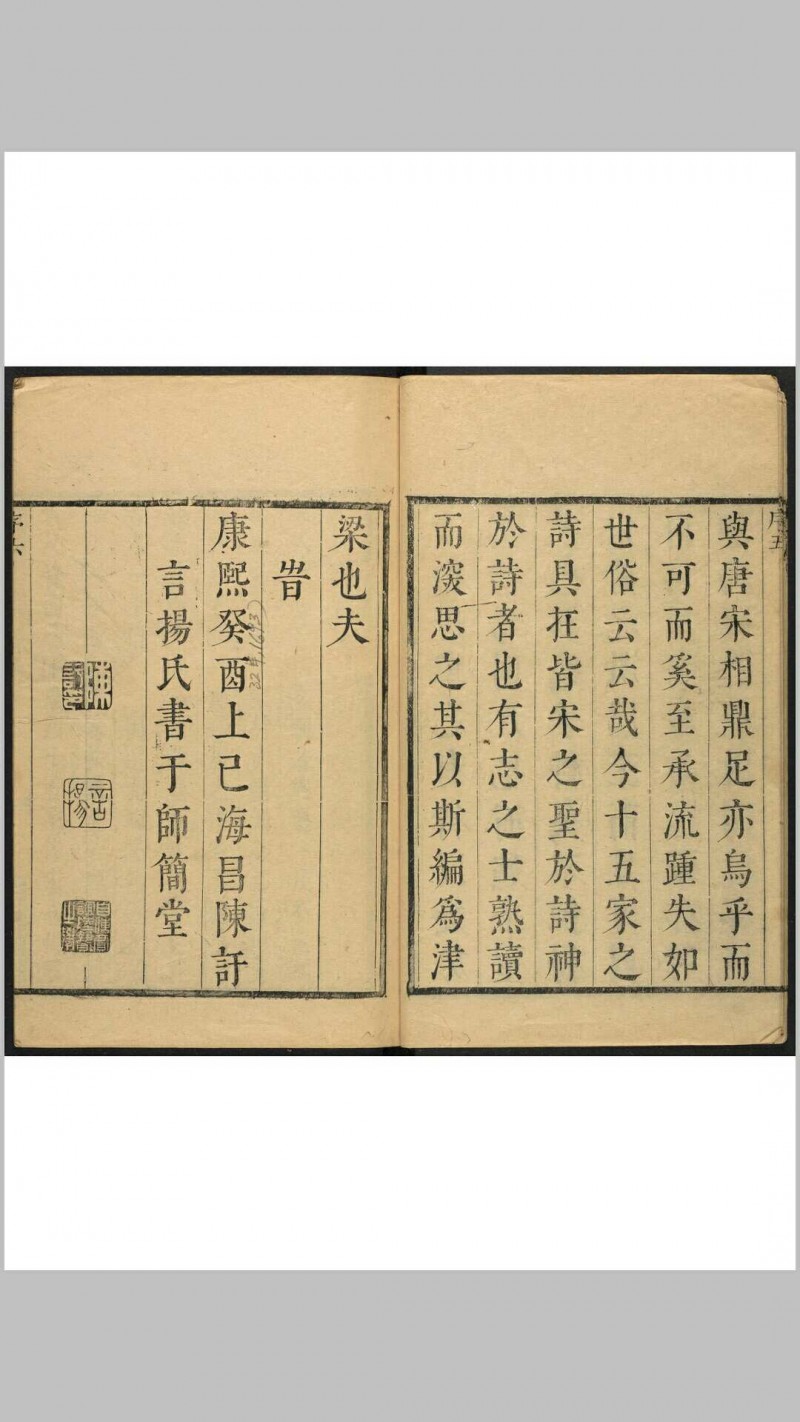 序五
與唐宋相鼎足亦烏乎而
不可而奚至承流踵失如
世俗云云哉今十五家之
詩具在皆宋之聖於詩神
於詩者也有志之士熟讀
而深思之其以斯編為津
梁也夫
旹
康熙癸酉上巳海昌陳訏
言揚氏書于師簡堂
序六
陳訏
言揚